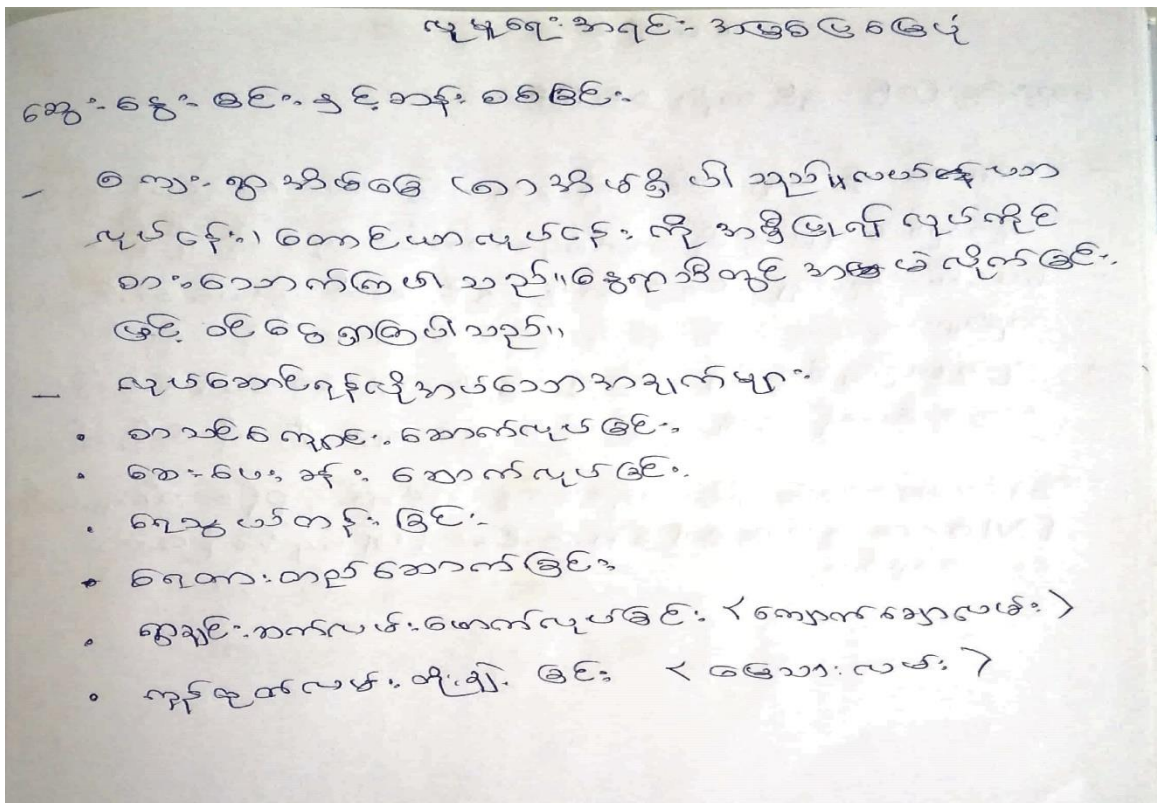 လူမှုရေး အရင်း အမြစ်ပြမြေပုံ
ဆွေးနွေးခြင်းနှင့်ဆန်းစစ်ခြင်း
– ကျေးရွာအိမ်ခြေ (၈၁) အိမ်ရှိပါသည်။ လယ်ယာ
လုပ်ငန်း၊ တောင်ယာလုပ်ငန်းကို အမှီပြု၍ လုပ်ကိုင်
စားသောက်ကြပါသည်။ နွေရာသီတွင် အမဲလိုက်ခြင်း
ဖြင့် ဝင်ငွေရှာကြပါသည်။
– လုပ်ဆောင်ရန်လိုအပ်သောအချက်များ
• စာသင်ကျောင်းဆောက်လုပ်ခြင်း
• ဆေးပေးခန်း ဆောက်လုပ်ခြင်း
• ရေသွယ်တန်းခြင်း
• ရေတားတည်ဆောက်ခြင်း
• ရွာချင်းဆက်လမ်းဖောက်လုပ်ခြင်း < ကျောက်ချောလမ်း >
• ကုန်ထုတ်လမ်းတိုးချဲ့ ခြင်း < မြေသားလမ်း >